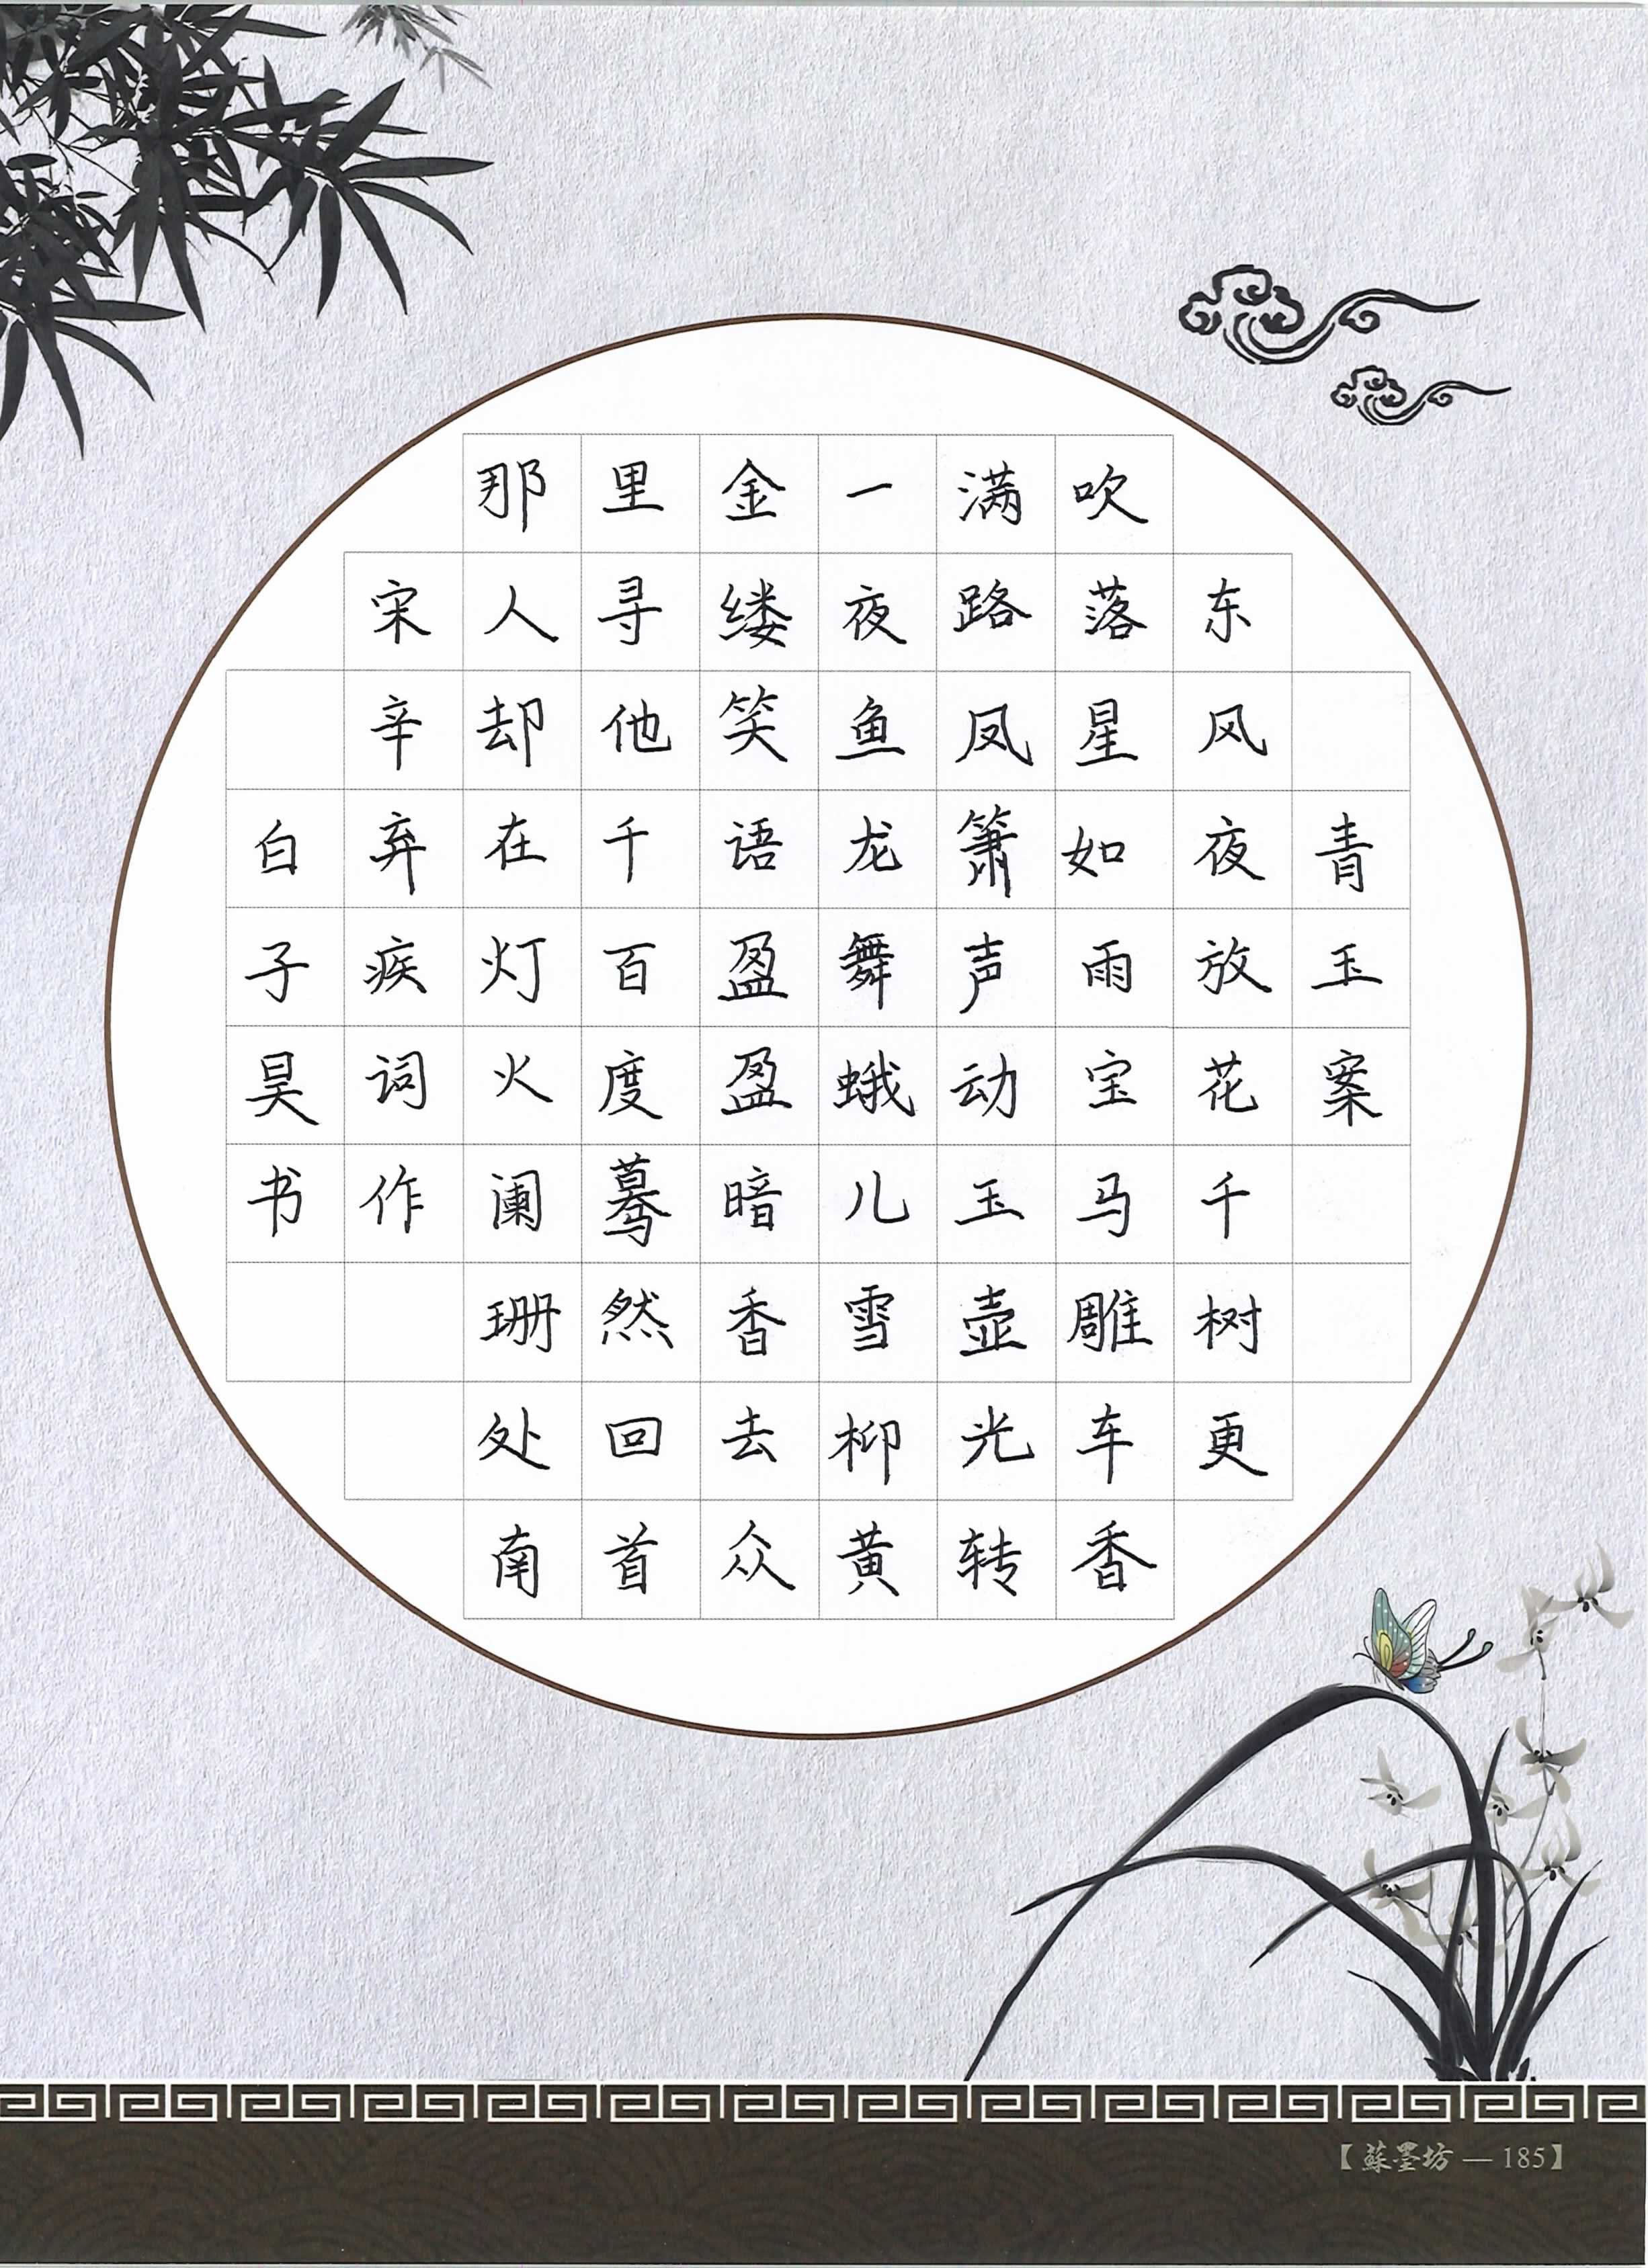 青玉案
东风夜放花千树更
吹落星如雨宝马雕车香
满路凤箫声动玉壶光转
一夜鱼龙舞蛾儿雪柳黄
金缕笑语盈盈暗香去众
里寻他千百度蓦然回首
那人却在灯火阑珊处南
宋辛弃疾词作
白子昊书
【蘇墨坊 — 185】